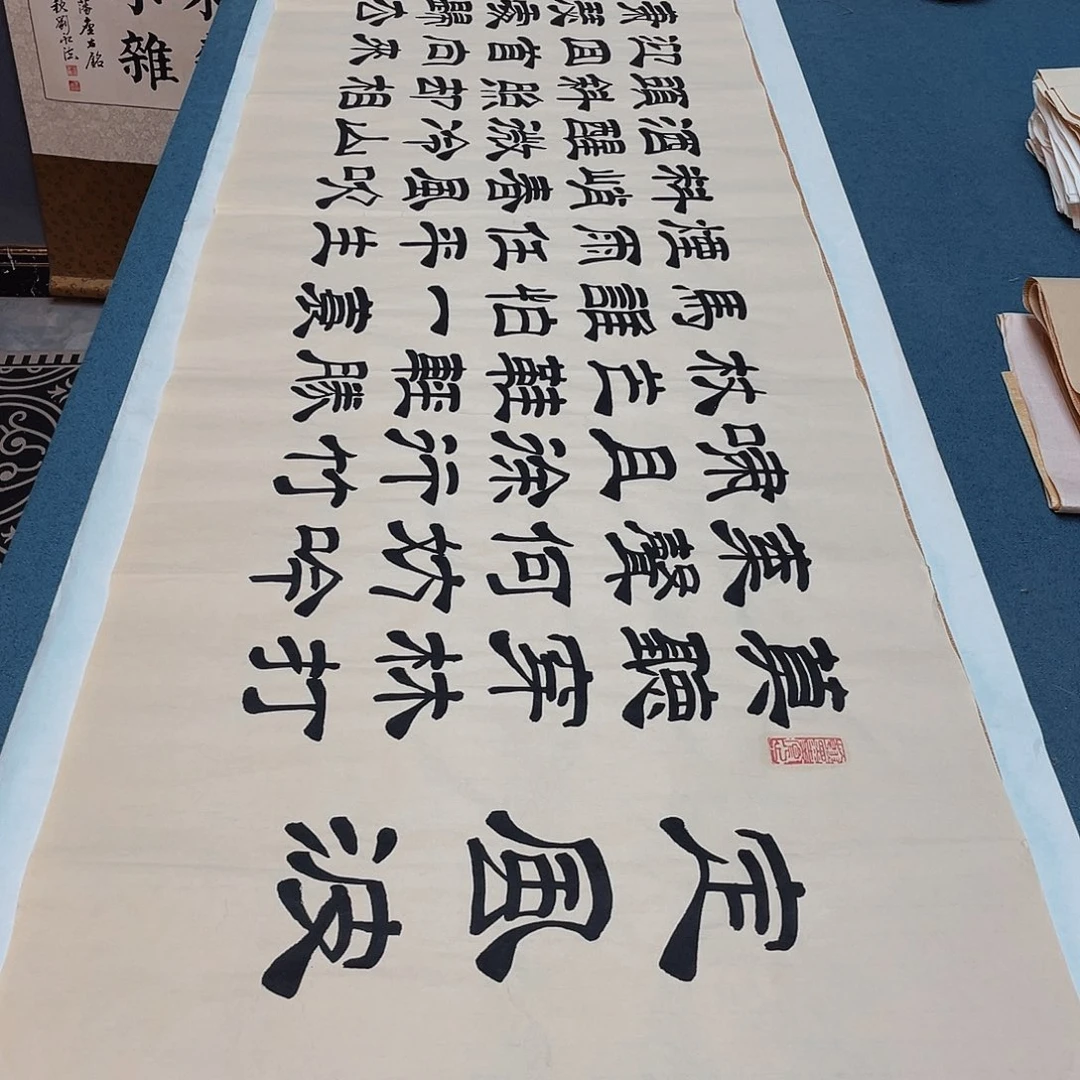 定風波
莫聽穿林打
葉聲何妨吟
嘯且徐行竹
杖芒鞋輕勝
馬誰怕一蓑
煙雨任平生
料峭春風吹
酒醒微冷山
頭斜照却相
迎回首向來
處歸去
雜